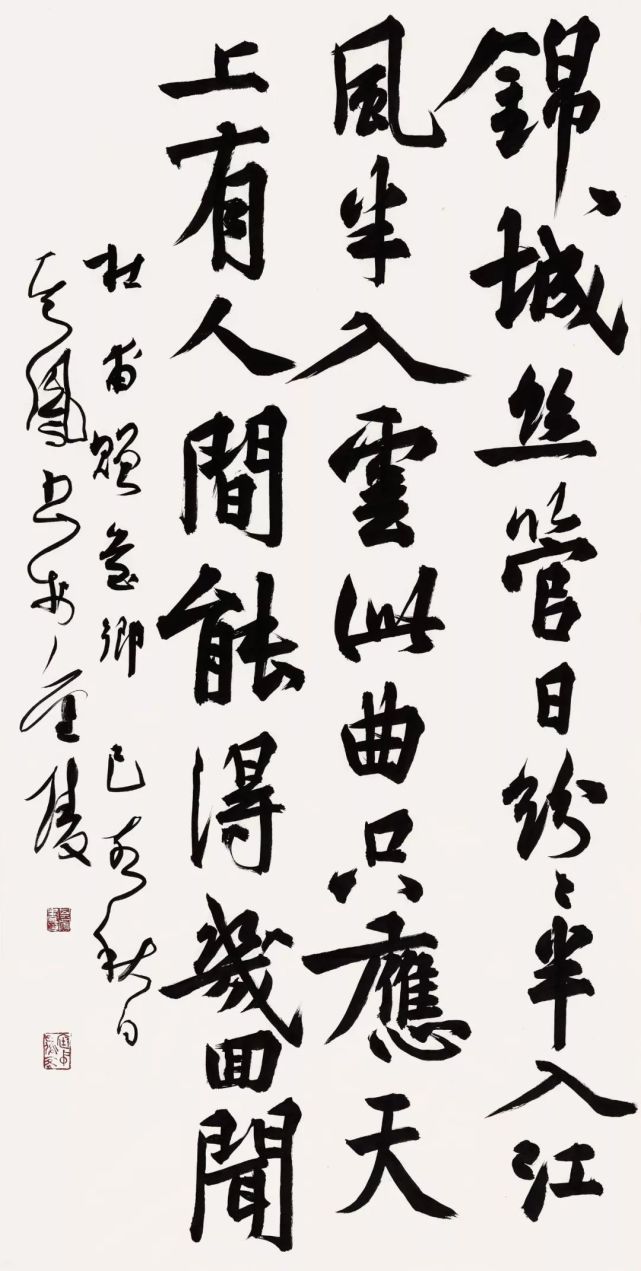 錦城丝管日紛〻半入江
風半入雲此曲只應天
上有人間能得幾回聞
杜甫贈花卿 己亥秋日
書於金陵